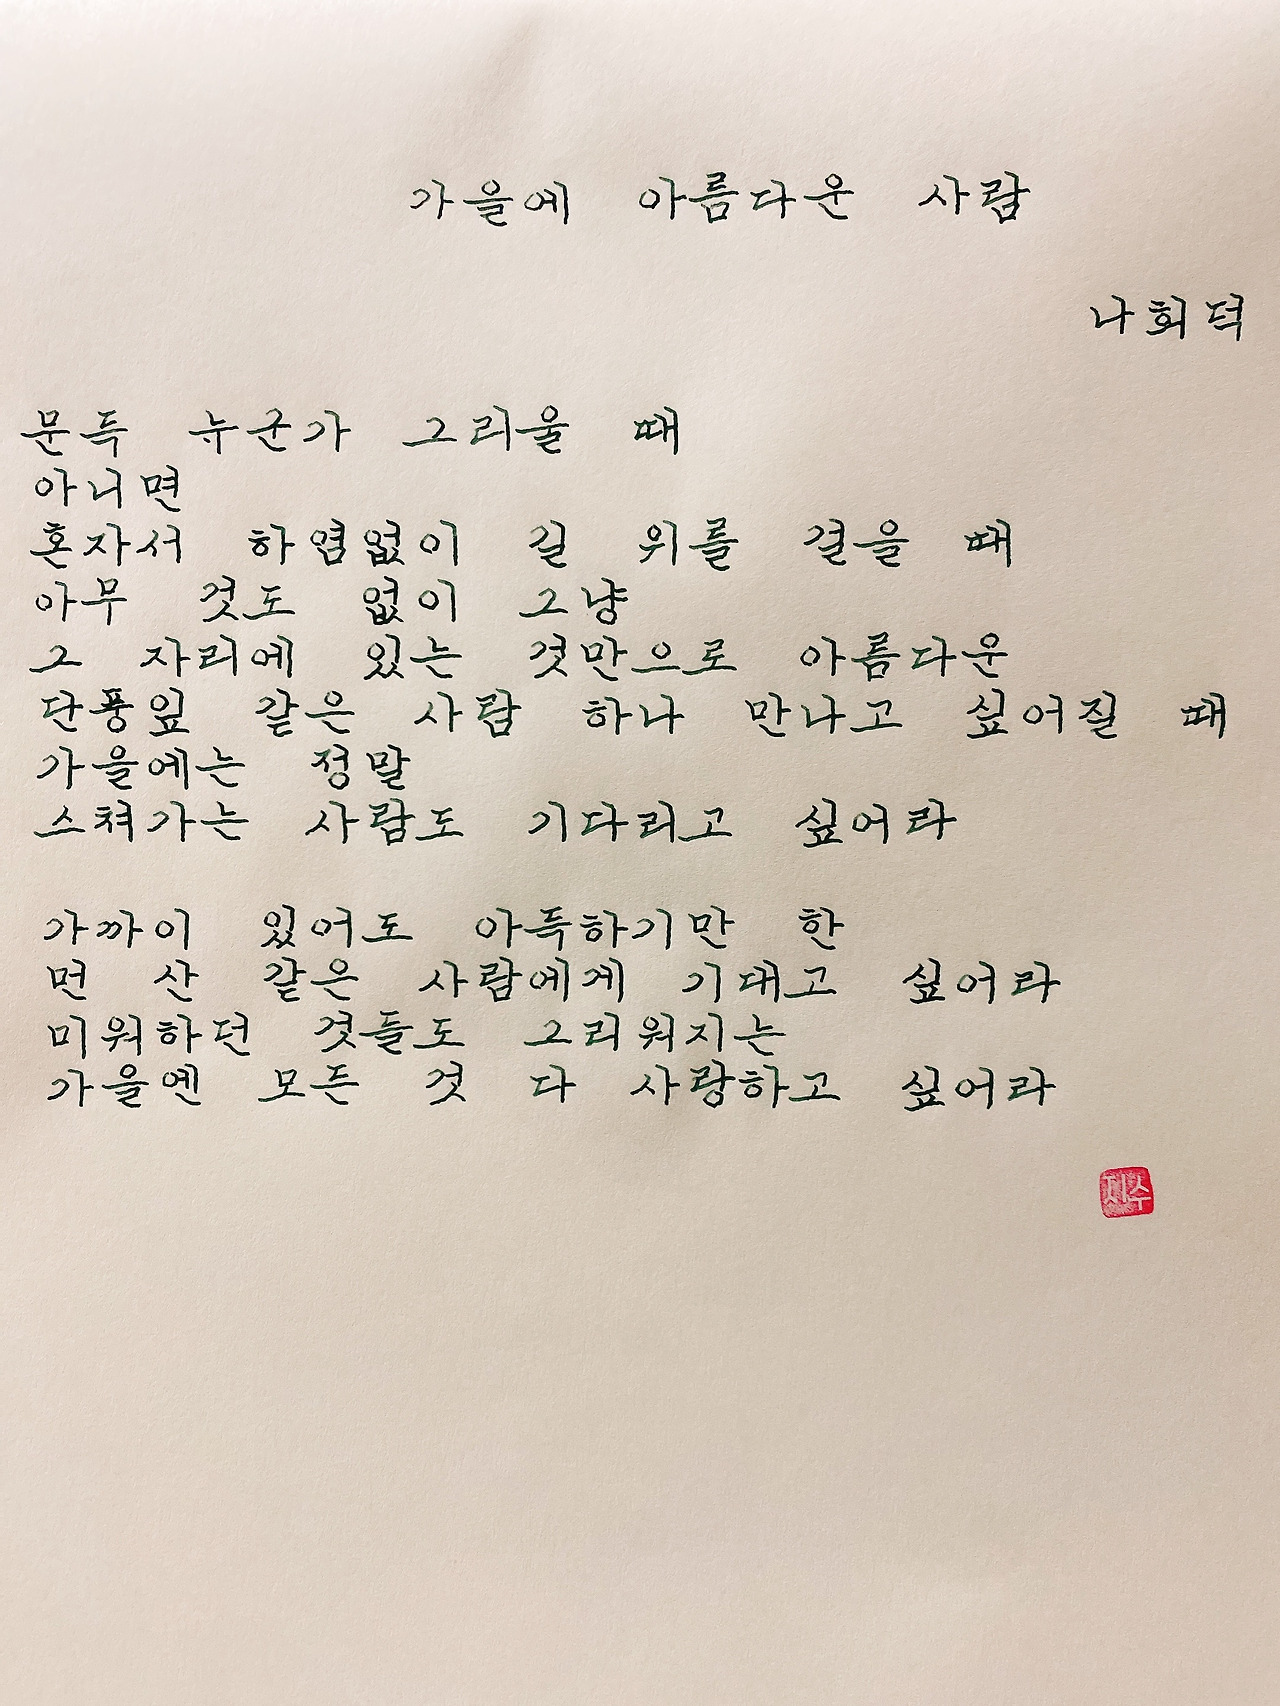 가을에 아름다운 사람
나희덕
문득 누군가 그리울 때
아니면
혼자서 하염없이 길 위를 걸을 때
아무 것도 없이 그냥
그 자리에 있는 것만으로 아름다운
단풍잎 같은 사람 하나 만나고 싶어질 때
가을에는 정말
스쳐가는 사람도 기다리고 싶어라
가까이 있어도 아득하기만 한
먼 산 같은 사람에게 기대고 싶어라
미워하던 것들도 그리워지는
가을엔 모든 것 다 사랑하고 싶어라
지수